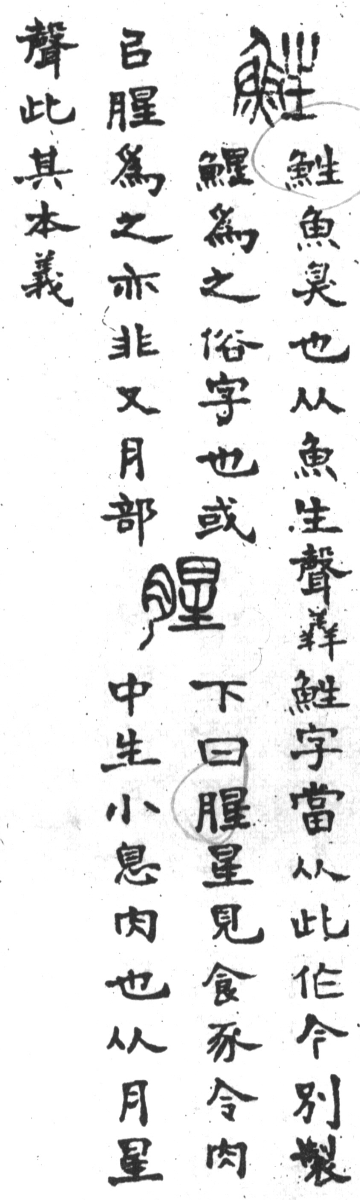 鮏
鮏魚臭也从魚生聲羴鮏字當从此作今別製
鯹爲之俗字也或
㠯腥爲之亦非又月部
腥
下曰腥星見食豕令肉
中生小息肉也从月星
聲此其本義